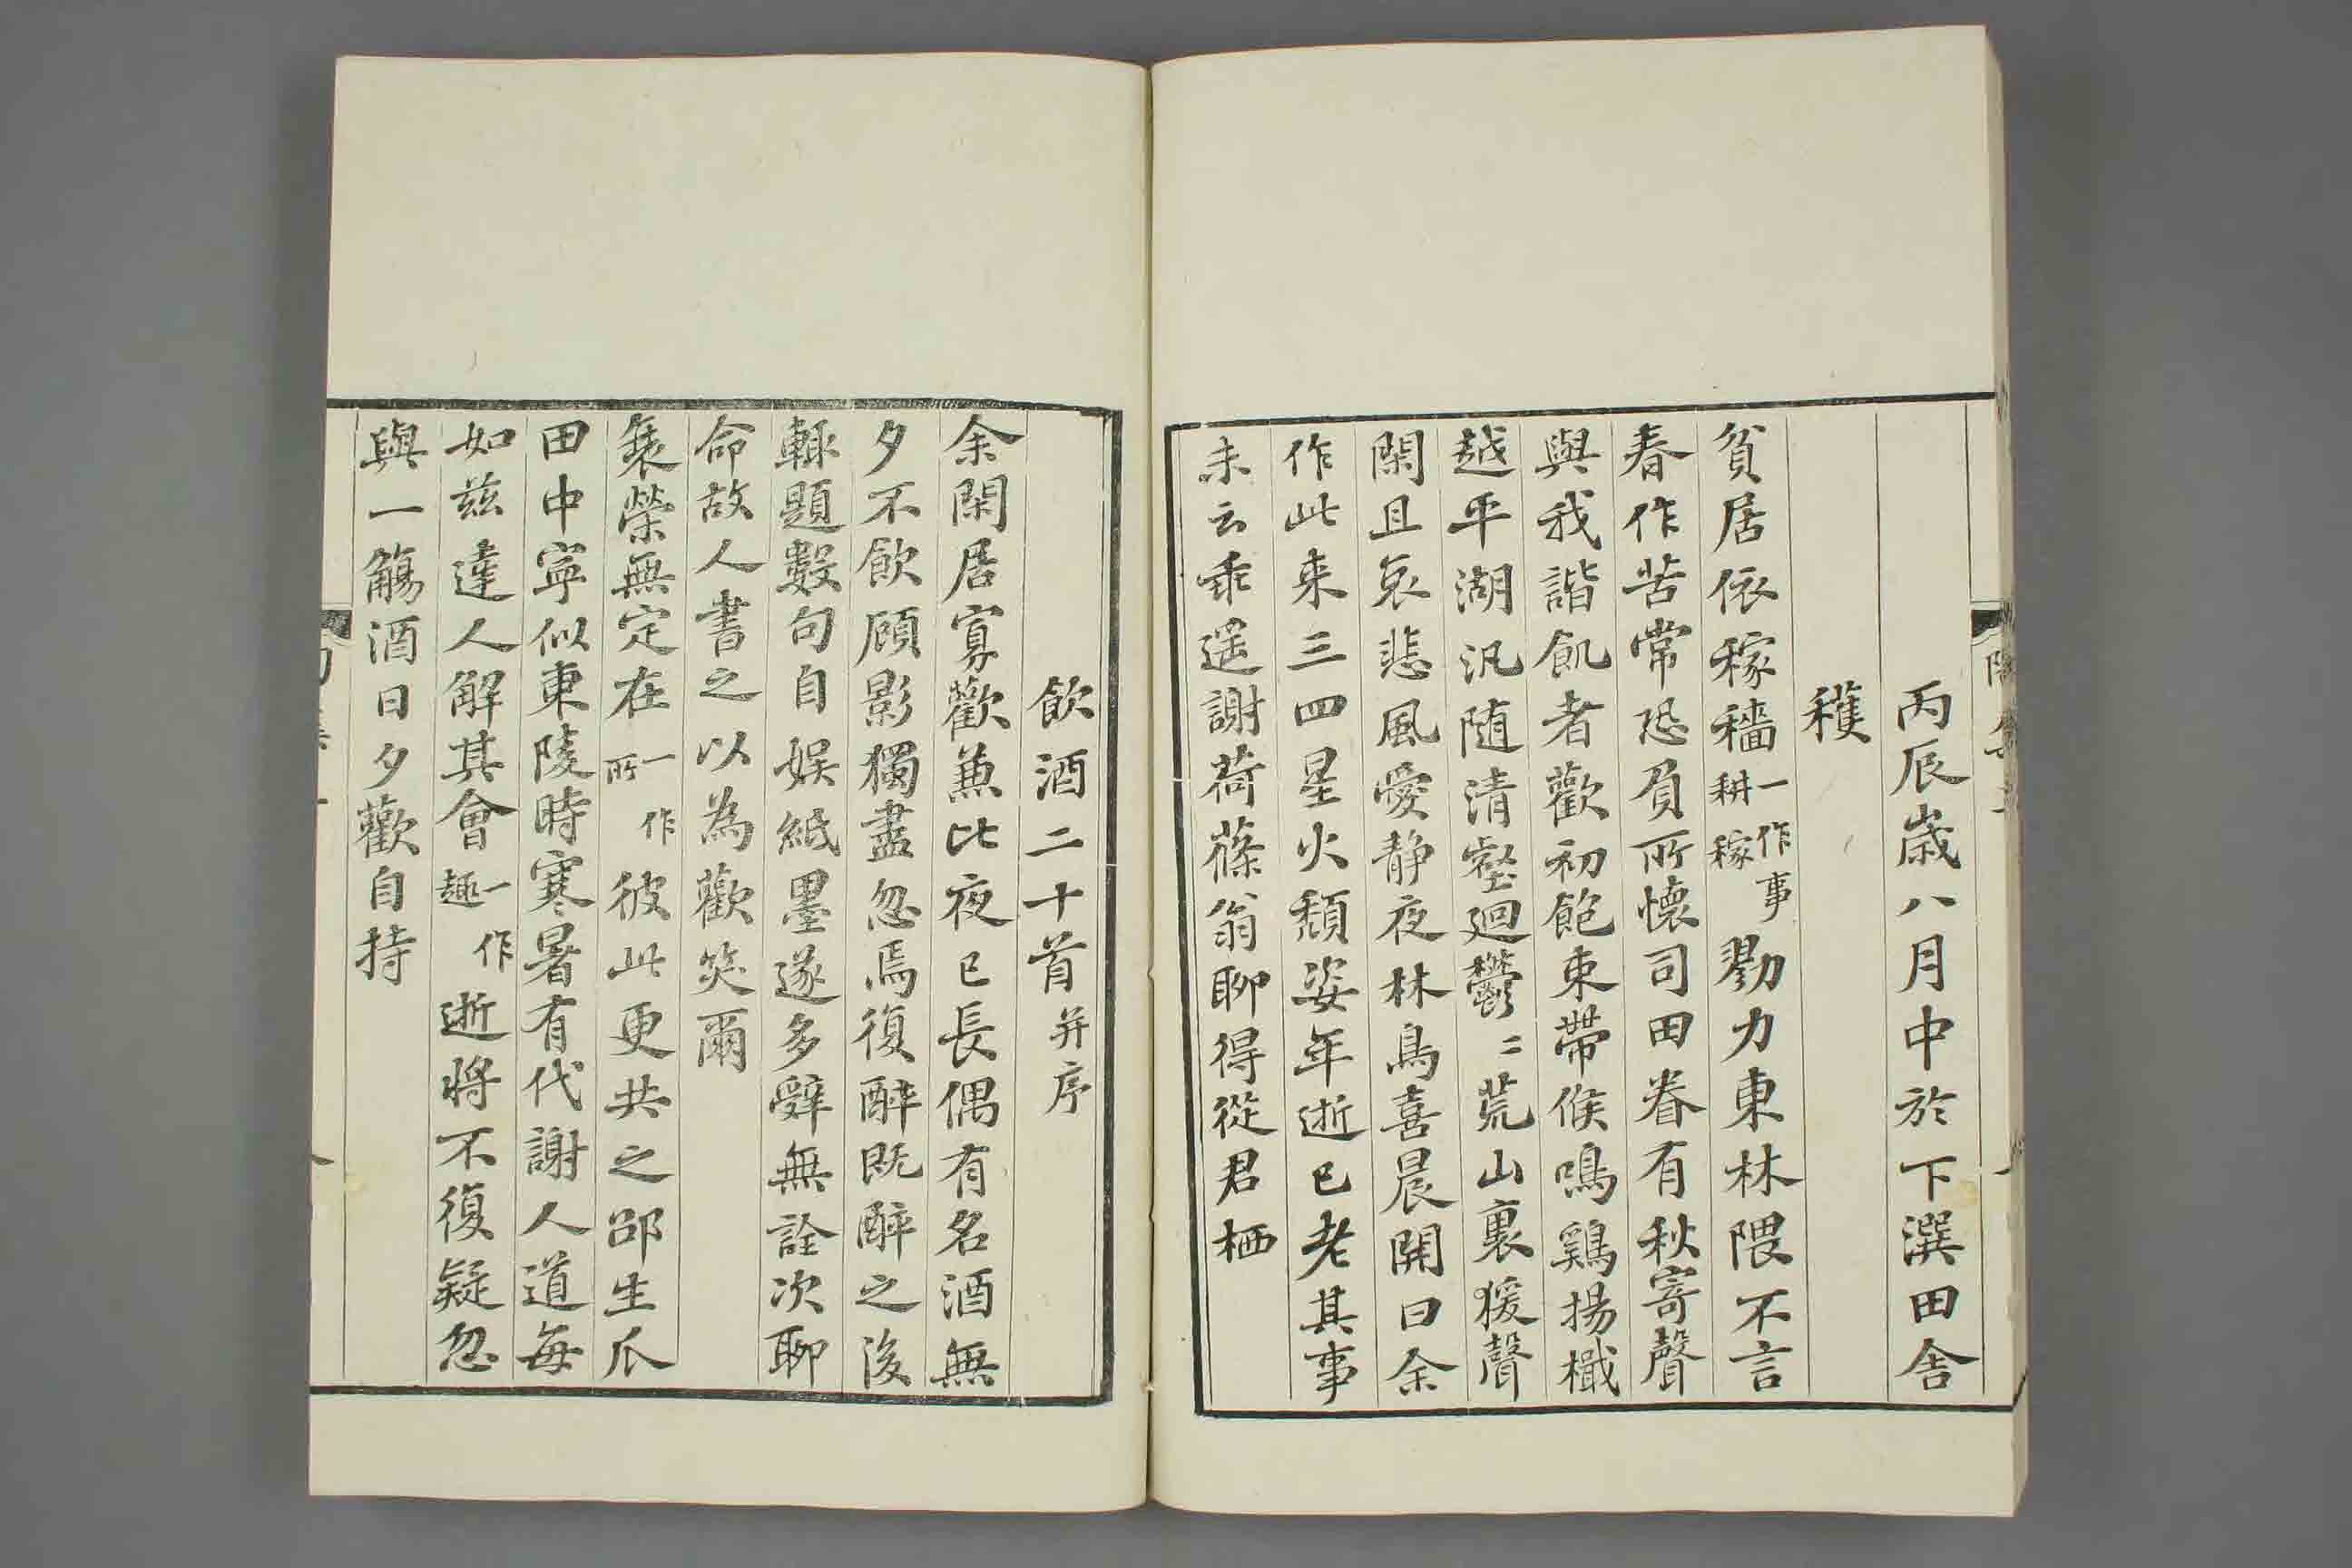 丙辰歳八月中於下潠田舎
穫
貧居依稼穡一作事耕稼勠力東林隈不言
春作苦常恐負所懷司田眷有秋寄聲
與我諧飢者歡初飽束帶候鳴鷄揚檝
越平湖汎随清壑廻鬱〻荒山裏猨聲
閑且哀悲風愛静夜林鳥喜晨開曰余
作此来三四星火頹姿年逝已老其事
未云乖遥謝荷蓧翁聊得從君栖
飲酒二十首并序
余閑居寡歡兼比夜已長偶有名酒無
夕不飲顧影獨盡忽焉復醉既醉之後
輙題數句自娱紙墨遂多辭無詮次聊
命故人書之以為歡笑爾
衰榮無定在一作所彼此更共之邵生瓜
田中寧似東陵時寒暑有代謝人道每
如兹達人解其會一作趣逝將不復疑忽
與一觴酒日夕歡自持